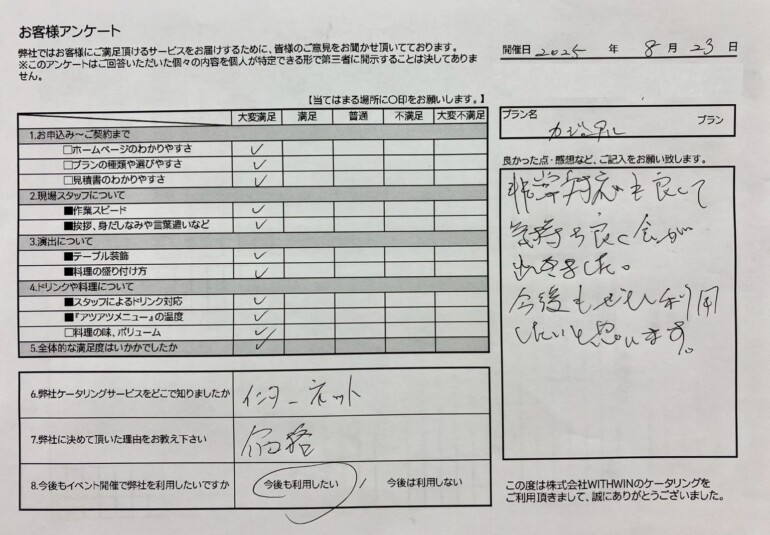 お客様アンケート
弊社ではお客様にご満足頂けるサービスをお届けするために、皆様のご意見をお聞かせ頂いてております。
※このアンケートはご回答いただいた個々の内容を個人が特定できる形で第三者に開示することは決してありま
せん。
開催日 2025 年 8 月 23 日
【当てはまる場所に〇印をお願いします。】
大変満足 満足 普通 不満足 大変不満足
1.お申込み〜ご契約まで
□ホームページのわかりやすさ ✓
□プランの種類や選びやすさ ✓
□見積書のわかりやすさ ✓
2.現場スタッフについて
■作業スピード ✓
■挨拶、身だしなみや言葉遣いなど ✓
3.演出について
■テーブル装飾 ✓
■料理の盛り付け方 ✓
4.ドリンクや料理について
■スタッフによるドリンク対応 ✓
■『アツアツメニュー』の温度 ✓
□料理の味、ボリューム ✓
5.全体的な満足度はいかがでしたか ✓
6.弊社ケータリングサービスをどこで知りましたか インターネット
7.弊社に決めて頂いた理由をお教え下さい 価格
8.今後もイベント開催で弊社を利用したいですか 今後も利用したい / 今後は利用しない
プラン名
カジュアル プラン
良かった点・感想など、ご記入をお願い致します。
非常に対応も良くて
気持ち良く会が
出来ました。
今後もぜひ利用
したいと思います。
この度は株式会社WITHWINのケータリングを
ご利用頂きまして、誠にありがとうございました。